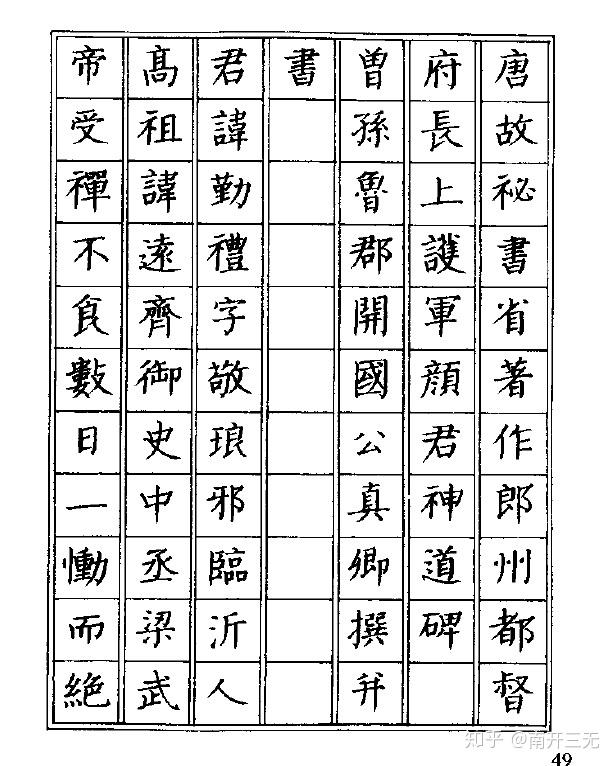 唐故祕書省著作郎州都督
府長上護軍顏君神道碑
曾孫魯郡開國公真卿撰并
書
君諱勤禮字敬琅邪臨沂人
高祖諱遠齊御史中丞梁武
帝受禪不食數日一慟而絕
知乎 @南开三无
49